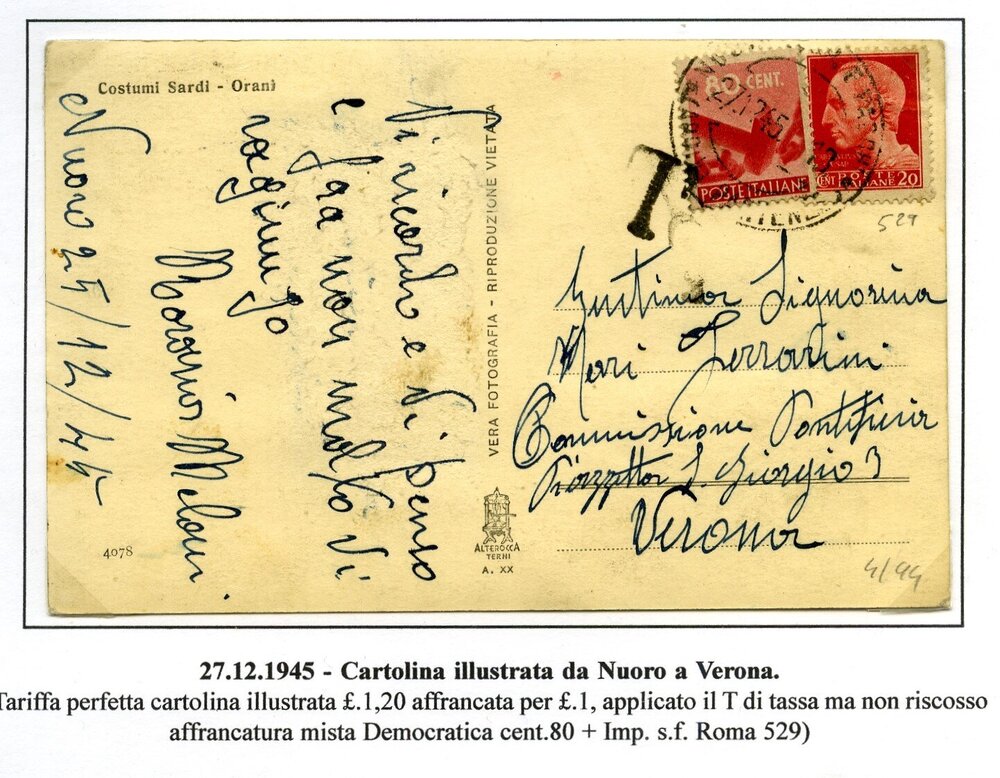 Costumi Sardi - Orani
Nuoro 25/12/45
Vi ricordo e Vi penso
e fra non molto Vi
raggiungo
Melani
4078
VERA FOTOGRAFIA - RIPRODUZIONE VIETATA
ALTEROCCA
TERNI
A. XX
80 CENT.
POSTE ITALIANE
CENT POSTE
ITALIANE 20
T
529
Signorina
Mari Ferrarini
Commissione Pontificia
Piazzetta S. Giorgio 3
Verona
4/94
27.12.1945 - Cartolina illustrata da Nuoro a Verona.
Tariffa perfetta cartolina illustrata £.1,20 affrancata per £.1, applicato il T di tassa ma non riscosso
affrancatura mista Democratica cent.80 + Imp. s.f. Roma 529)